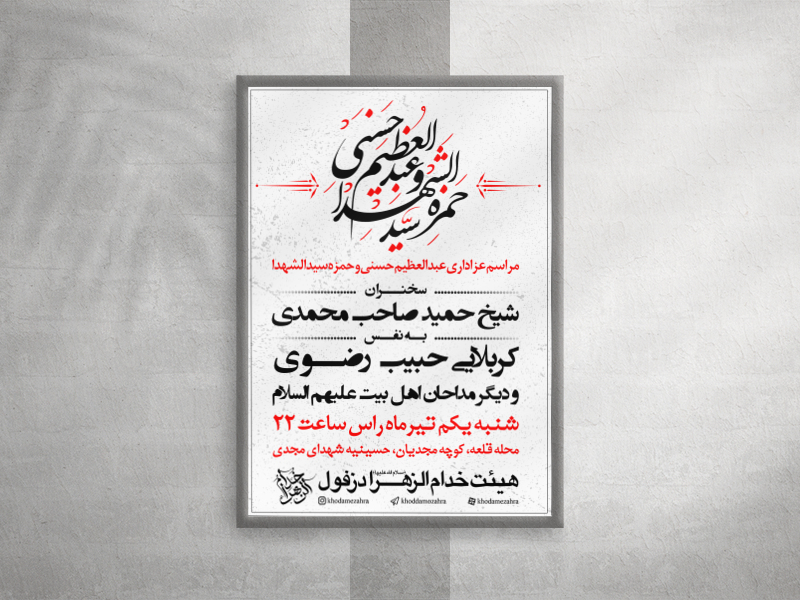 حمزه سیدالشهدا و عبدالعظیم حسنی
مراسم عزاداری عبدالعظیم حسنی و حمزه سیدالشهدا
سخنران
شیخ حمید صاحب محمدی
به نفس
کربلایی حبیب رضوی
و دیگر مداحان اهل بیت علیهم السلام
شنبه یکم تیرماه راس ساعت ۲۲
محله قلعه، کوچه مجدیان، حسینیه شهدای مجدی
هیئت خدام الزهرا سلام الله علیها دزفول
khodamezahra khoddamozahra khodamezahra